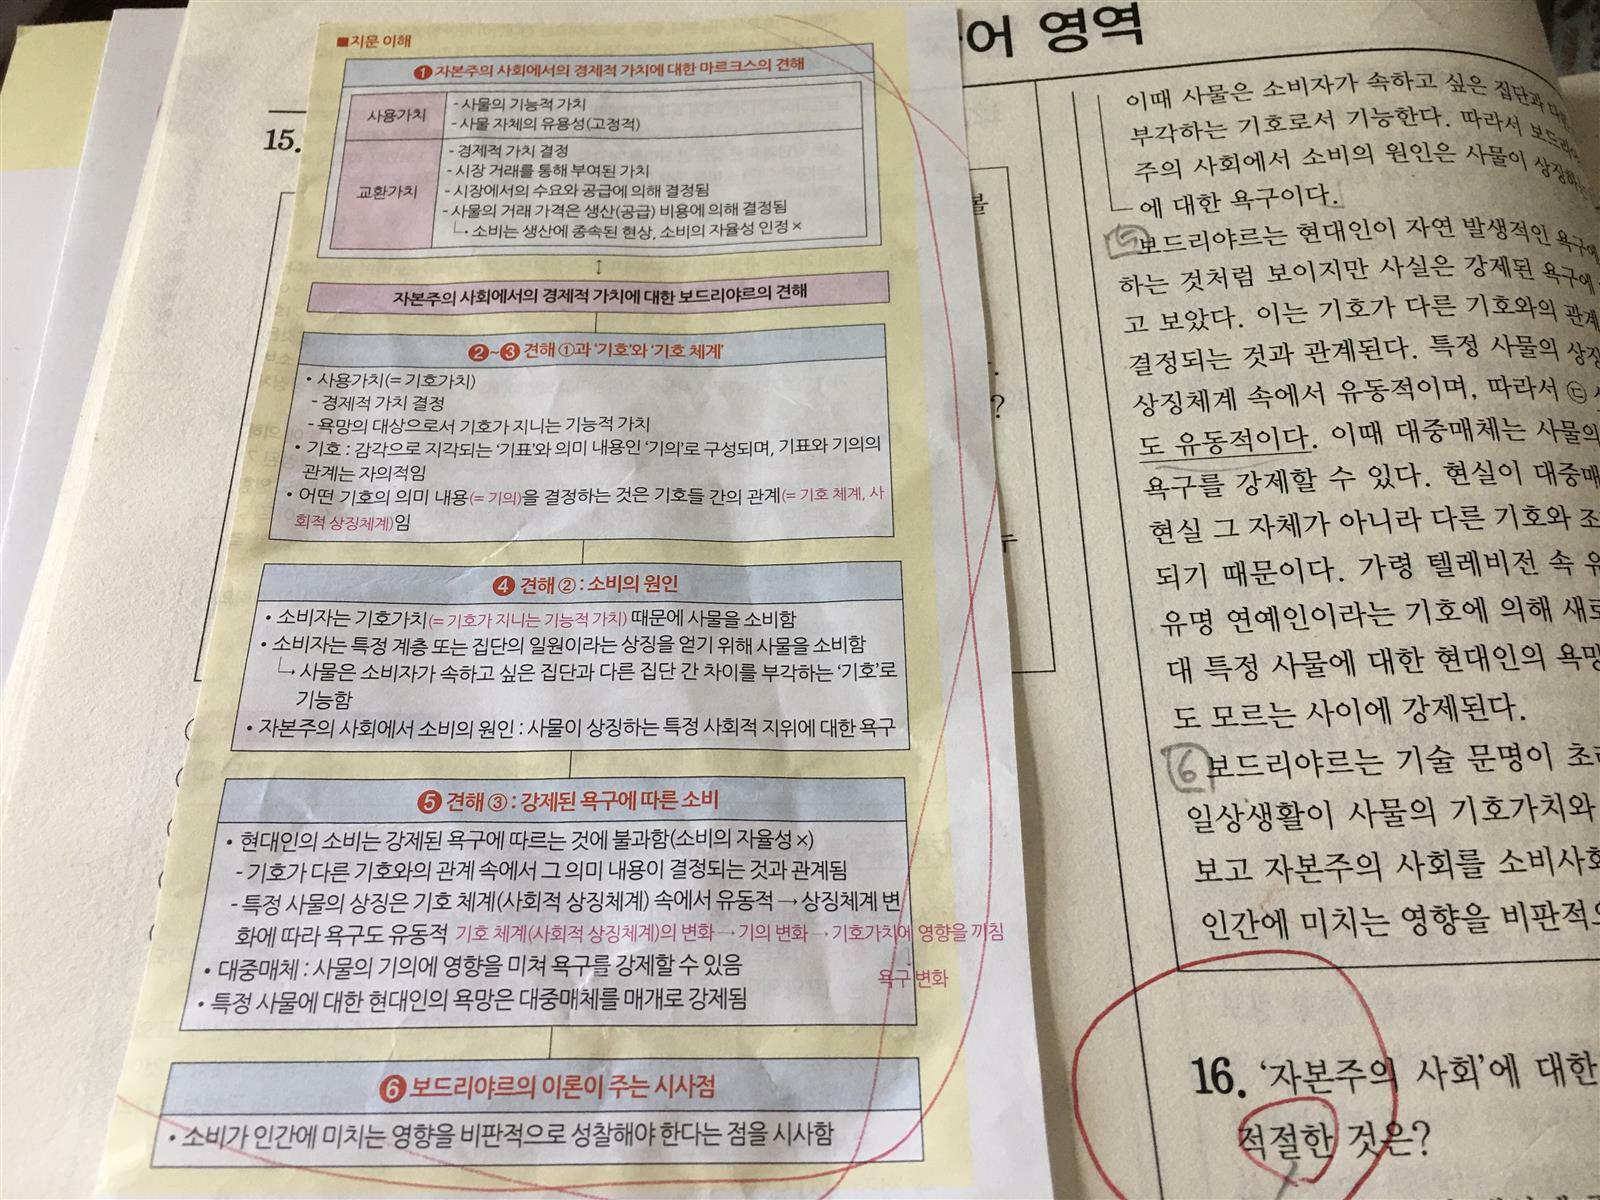 ■지문 이해
❶ 자본주의 사회에서의 경제적 가치에 대한 마르크스의 견해
사용가치
- 사물의 기능적 가치
- 사물 자체의 유용성(고정적)
교환가치
- 경제적 가치 결정
- 시장 거래를 통해 부여된 가치
- 시장에서의 수요와 공급에 의해 결정됨
- 사물의 거래 가격은 생산(공급) 비용에 의해 결정됨
↳ 소비는 생산에 종속된 현상, 소비의 자율성 인정 ×
↕
자본주의 사회에서의 경제적 가치에 대한 보드리야르의 견해
❷~❸ 견해 ①과 '기호'와 '기호 체계'
• 사용가치(= 기호가치)
- 경제적 가치 결정
- 욕망의 대상으로서 기호가 지니는 기능적 가치
• 기호 : 감각으로 지각되는 '기표'와 의미 내용인 '기의'로 구성되며, 기표와 기의의
관계는 자의적임
• 어떤 기호의 의미 내용(= 기의)을 결정하는 것은 기호들 간의 관계(= 기호 체계, 사
회적 상징체계)임
❹ 견해 ② : 소비의 원인
• 소비자는 기호가치(= 기호가 지니는 기능적 가치) 때문에 사물을 소비함
• 소비자는 특정 계층 또는 집단의 일원이라는 상징을 얻기 위해 사물을 소비함
↳ 사물은 소비자가 속하고 싶은 집단과 다른 집단 간 차이를 부각하는 '기호'로
기능함
• 자본주의 사회에서 소비의 원인 : 사물이 상징하는 특정 사회적 지위에 대한 욕구
❺ 견해 ③ : 강제된 욕구에 따른 소비
• 현대인의 소비는 강제된 욕구에 따르는 것에 불과함(소비의 자율성 ×)
- 기호가 다른 기호와의 관계 속에서 그 의미 내용이 결정되는 것과 관계됨
- 특정 사물의 상징은 기호 체계(사회적 상징체계) 속에서 유동적 → 상징체계 변
화에 따라 욕구도 유동적 기호 체계(사회적 상징체계)의 변화 → 기의 변화 → 기호가치에 영향을 끼침
↓
욕구 변화
• 대중매체 : 사물의 기의에 영향을 미쳐 욕구를 강제할 수 있음
• 특정 사물에 대한 현대인의 욕망은 대중매체를 매개로 강제됨
❻ 보드리야르의 이론이 주는 시사점
• 소비가 인간에 미치는 영향을 비판적으로 성찰해야 한다는 점을 시사함
15.
어 영역
이때 사물은 소비자가 속하고 싶은 집단과
부각하는 기호로서 기능한다. 따라서 보드리야
주의 사회에서 소비의 원인은 사물이 상징하
에 대한 욕구이다.
5 보드리야르는 현대인이 자연 발생적인 욕구에
하는 것처럼 보이지만 사실은 강제된 욕구에
고 보았다. 이는 기호가 다른 기호와의 관계
결정되는 것과 관계된다. 특정 사물의 상징
상징체계 속에서 유동적이며, 따라서 ㉢
도 유동적이다. 이때 대중매체는 사물의
욕구를 강제할 수 있다. 현실이 대중매
현실 그 자체가 아니라 다른 기호와 조
되기 때문이다. 가령 텔레비전 속 유
유명 연예인이라는 기호에 의해 새로
대 특정 사물에 대한 현대인의 욕망
도 모르는 사이에 강제된다.
6 보드리야르는 기술 문명이 초래
일상생활이 사물의 기호가치와
보고 자본주의 사회를 소비사회
인간에 미치는 영향을 비판적으
16. '자본주의 사회'에 대한
적절한 것은?